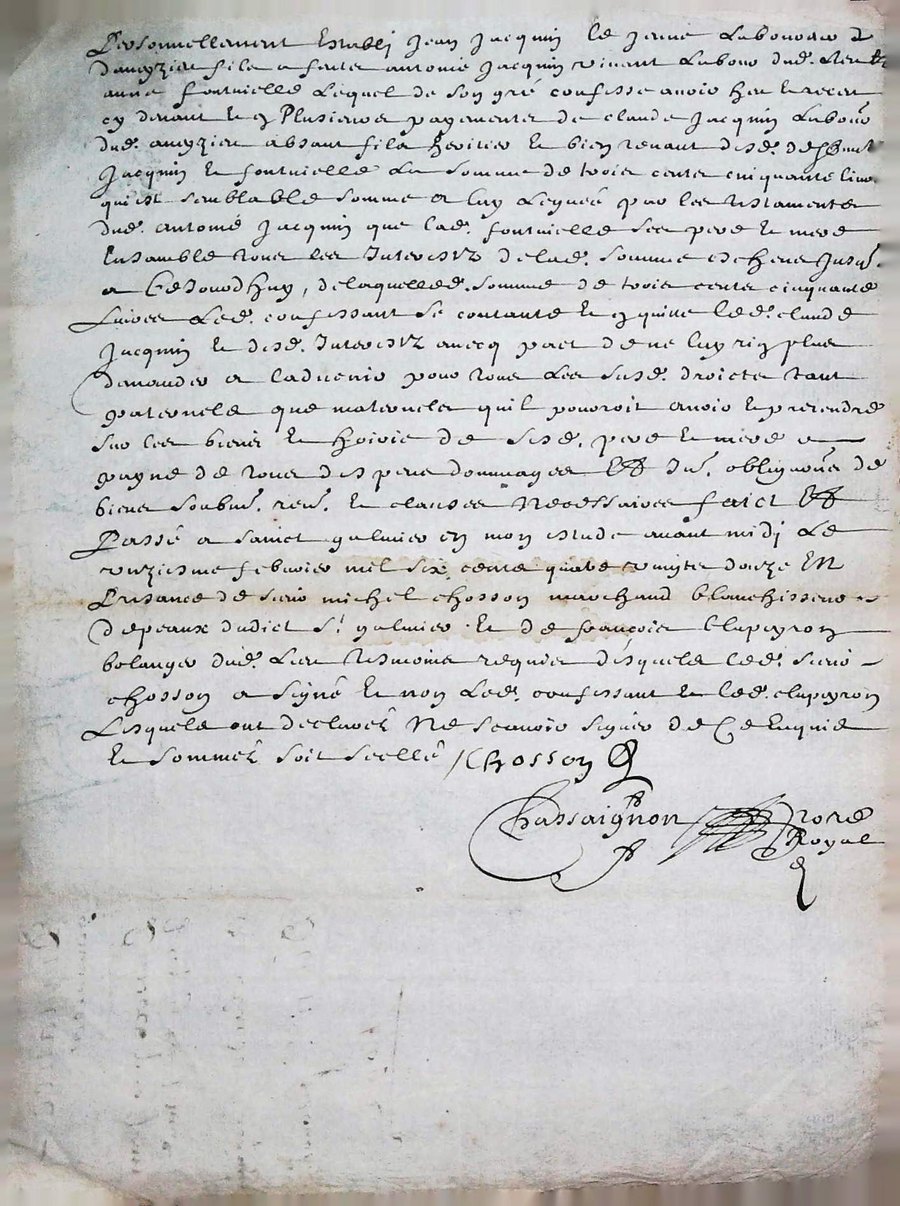 Personnellement Estably Jean Jacquin le jeune Laboureur d
daveyzieu fils a feus antoine Jacquin vivant Labour. dud. lieu et
anne fontvielle Lequel de son gré confesse avoir heu et receu
cy devant et en Plusieurs payements de claude Jacquin Labour.
dud. aveyzieu absant fils heritier et bien tenant desd. deffunct
Jacquin et fontvielle La somme de trois cents cinquante livres
qui est semblable somme a luy Leguée par les testaments
dud. antoine Jacquin que lad. fontvielle ses pere et mere
Ensamble tous les Interestz de lad. somme escheus Jusq.
a Cejourdhuy, de laquelled. somme de trois cents cinquante
Livres Led. confessant se contante et en quitte led. claude
Jacquin et desd. Interestz avecq pact de ne luy rien plus
demander a ladvenir pour tous Les susd. droicts tant
paternels que maternels quil pourroit avoir et pretendre
sur les biens et hoirie de sesd. pere et mere a
peyne de tous despens dommages Et Int. obligaons de
biens soubm. ren. et clauses Necessaires faict Et
Passé a sainct galmier en mon estude avant midi Le
unziesme febvrier mil six cents quatre vingts douze En
Presance de sieur michel chosson marchand blanchisseur
de peaux dudict St galmier et de françois clapeyron
bolanger dud. Lieu tesmoins requis desquels led. sieur
chosson a signé et non Led. confessant et led. clapeyron
Lesquels ont declarés Ne scavoir signer de Ce Enquis
et sommés soit scellé / Chosson
Chassaignon Nore
Royal